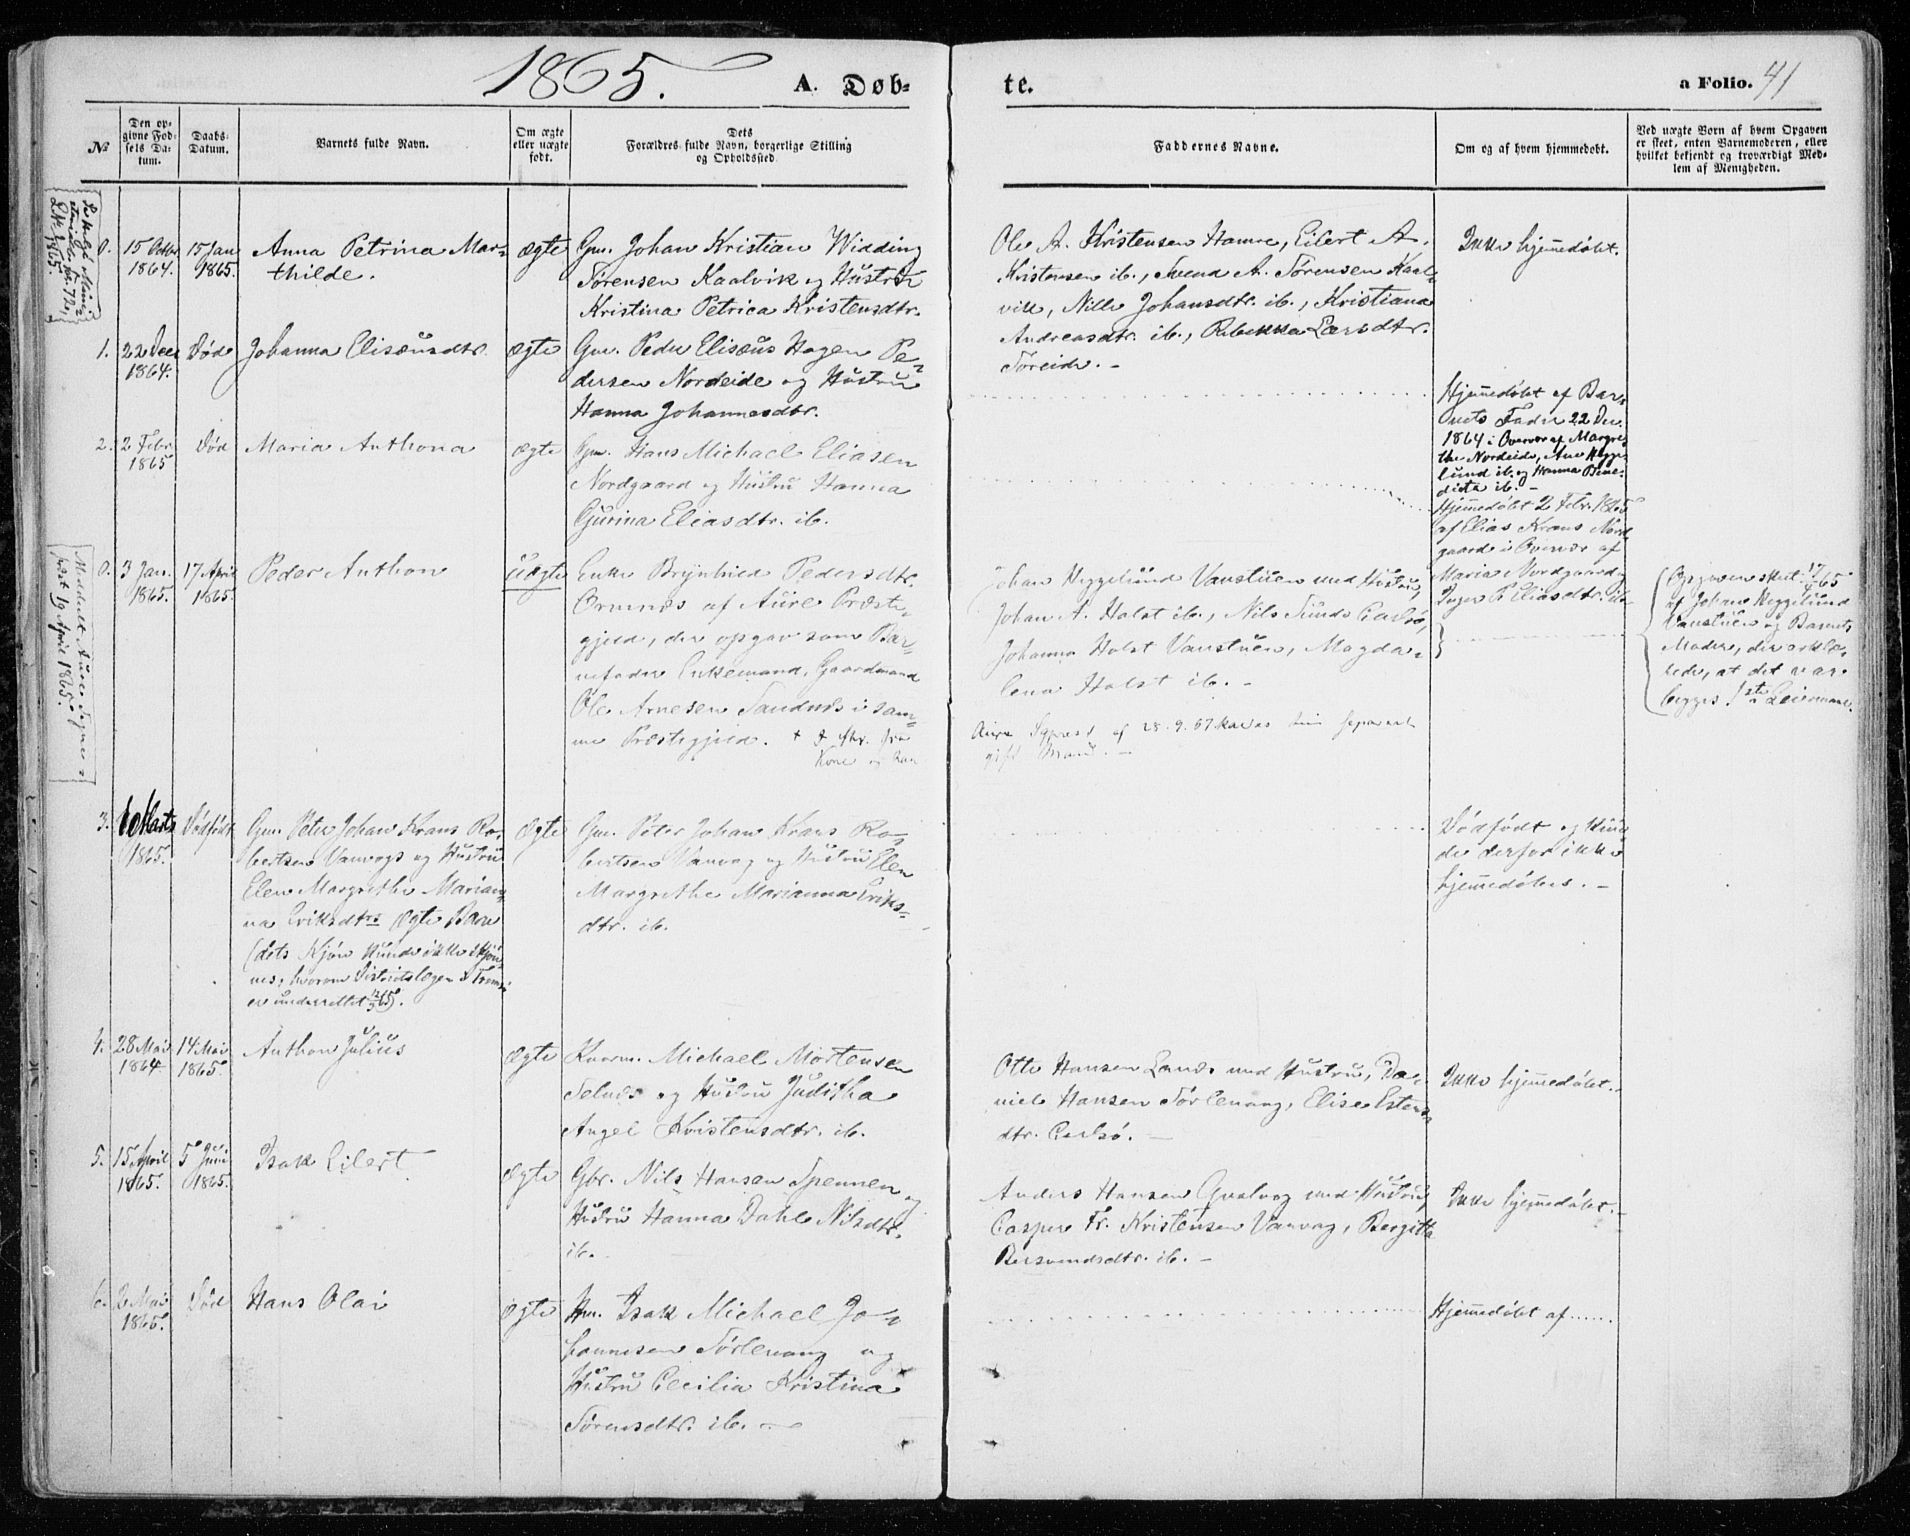 1865.
A. Døb-
te.
a Folio. 41
№
Den op-
givne Fød-
sels Da-
tum.
Daabs-
Datum.
Barnets fulde Navn.
Om ægte
eller uægte
født.
Dets
Forældres fulde Navn, borgerlige Stilling
og Opholdssted.
Faddernes Navne.
Om og af hvem hjemmedøbt.
Ved uægte Børn af hvem Opgaven
er skeet, enten Barnemoderen, eller
hvilket bekjendt og troværdigt Med-
lem af Menigheden.
0.
15 Octbr
1864.
15 Jan
1865.
Anna Petrina Mar-
thilde.
ægte
Gm. Johan Kristian Widding
Sørensen Kaalvik og Hustru
Kristina Petrica Kristensdtr.
Ole A. Kristensen Hamre, Eilert A.
Kristensen ib., Svend A. Sørensen Kaal-
vik, Nille Johansdtr. ib., Kristiana
Andreasdtr. ib., Rebekka Larsdtr.
Soreide. -
Ikke hjemmedøbt.
1.
22 Dec
1864.
Døde
Johanna Elisæusdtr.
ægte
Gm. Peder Elisæus Hagen Pe-
dersen Nordeide og Hustru
Hanna Johannesdtr.
Hjemmedøbt af Bar-
nets Fader 22 Dec.
1864 i Overvær af Margre-
the Nordeide, Ane Hegge-
lund ib. og Hanna Bene-
dicta ib. -
2.
2 Febr.
1865
Død
Maria Anthona
ægte
Gm. Hans Michael Eliasen
Nordgaard og Hustru Hanna
Gjurina Eliasdtr. ib.
Hjemmedøbt 2 Febr. 1865
af Elias Krans Nord-
gaard i Overvær af
Maria Nordgaard og
Inger P. Eliasdtr. ib.
0.
3 Jan.
1865.
17 April
1865.
Peder Anthon
uægte
Enke Brynhild Pedersdtr.
Ormnæs af Aure Præste-
gjeld, der opgav som Bar-
nefader Enkemand, Gaardmand
Ole Arnesen Sandnes i sam-
me Præstegjeld.
Kone og han
Johan Heggelund Vanstuen med Hustru,
Johan A. Holst ib., Nils Sunds Carlsø,
Johanna Holst Vanstuen, Magda-
lena Holst ib. -
gift Mand. -
Opgaven skeet 17/4 65
af Johan Heggelund
Vanstuen og Barnets
Moder, der erklæ-
rede, at det var
begges 1ste Leiermaal.
Meddelt Aure Sogne-
præst 19 April 1865.
3.
Marts
1865.
Dødfødt
Gm. Peter Johan Krans Ro-
bertsen Vanvags og Hustru
Elen Margrethe Marian-
na Eriksdtrs ægte Barn
(dets Kjøn kunde ikke skjøn-
nes, hvorom Districtslægen i Tromsø
er underrettet
ægte
Gm. Peter Johan Krans Ro-
bertsen Vanvag og Hustru Elen
Margrethe Marianna Eriks-
dtr. ib.
Dødfødt og kun-
de derfor ikke
hjemmedøbes. -
4.
28 Mai
1864
14 Mai
1865.
Anthon Julius
ægte
Kvæm. Michael Mortensen
Selnes og Hustru Juditha
Angel Kristensdtr. ib.
Otto Hansen Lanes med Hustru, Da-
niel Hansen Sørlenang, Elise Esters-
dtr. Carlsø. -
Ikke hjemmedøbt.
5.
15 April
1865.
5 Juni
1865.
Isak Eilert
ægte
Gbr. Nils Hansen Spennen og
Hustru Hanna Dahl Nilsdtr.
ib.
Anders Hansen Qvalvag med Hustru,
Casper Fr. Kristensen Vanvag, Bergitta
Bersvendsdtr. ib. -
Ikke hjemmedøbt. -
6.
2 Mai
1865.
Død
Hans Olai
ægte
Hm. Isak Michael Jo-
hannesen Sørlenang og
Hustru Cecilia Kristina
Sørensdtr. ib. -
Hjemmedøbt af ......